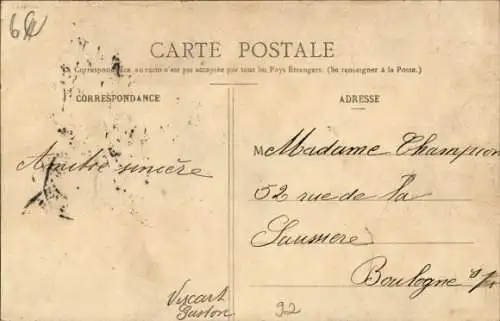 6
CARTE POSTALE
La Correspondance au recto n'est pas acceptée par tous les Pays Étrangers. (Se renseigner à la Poste.)
CORRESPONDANCE
ADRESSE
Amitié sincère
M Madame Champion
52 rue de la
Saussière
Boulogne s/
Viscart
Gaston
92